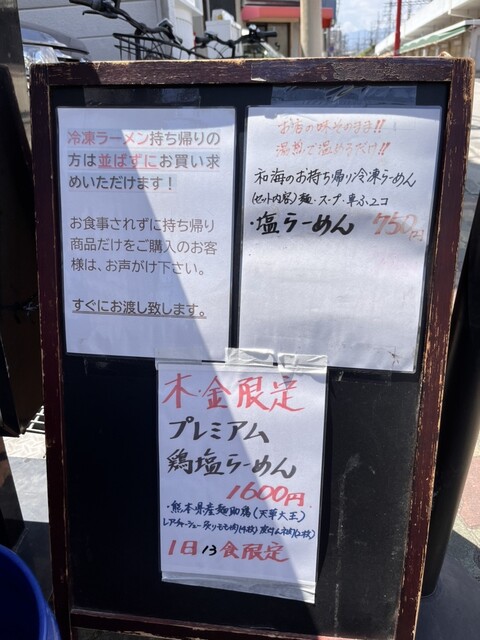 冷凍ラーメン持ち帰りの
方は並ばずにお買い求
めいただけます！
お食事されずに持ち帰り
商品だけをご購入のお客
様は、お声がけ下さい。
すぐにお渡し致します。
お店の味そのまま!!
湯煎で温めるだけ!!
和海のお持ち帰り冷凍らーめん
(セット内容)麺・スープ・車ふ2コ
・塩らーめん 750円
木・金限定
プレミアム
鶏塩らーめん
1600円
・熊本県産麺助鶏(天草大王)
レアチャーシュー 炙りもも肉(4枚)
1日13食限定